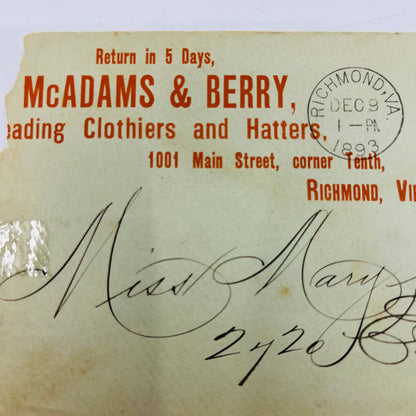 Return in 5 Days,
McADAMS & BERRY,
eading Clothiers and Hatters,
1001 Main Street, corner Tenth,
RICHMOND, VI
RICHMOND, VA.
DEC 9
1-PM
1893
Miss Mary
2720